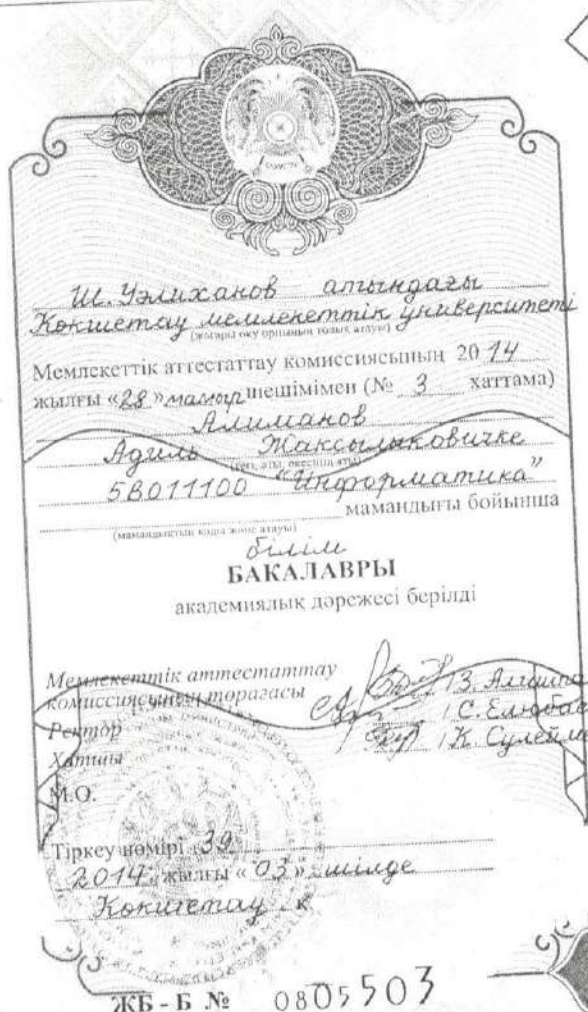 Ш. Уәлиханов атындағы
Көкшетау мемлекеттік университеті
(жоғары оқу орнының толық атауы)
Мемлекеттік аттестаттау комиссиясының 20 14
жылғы «28» мамыр шешімімен (№ 3 хаттама)
Алиманов
Адиль Жаксылыковичке
(тегі, аты, әкесінің аты)
5В011100 "Информатика"
мамандығы бойынша
(мамандықтың коды және атауы)
білім
БАКАЛАВРЫ
академиялық дәрежесі берілді
Мемлекеттік аттестаттау
комиссиясының төрағасы
Ректор
Хатшы
М.О.
Тіркеу нөмірі 39
2014 жылғы «03» шілде
Көкшетау қ
ЖБ - Б № 0805503